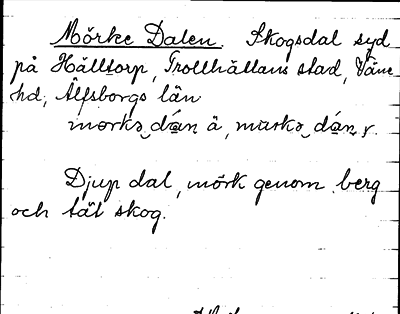 Mörke Dalen. Skogsdal syd
på Hälltorp, Trollhättans stad, Väne
hd, Älfsborgs län
mörkə dán ä, mɯrkə dán, r.
Djup dal, mörk genom berg
och tät skog.